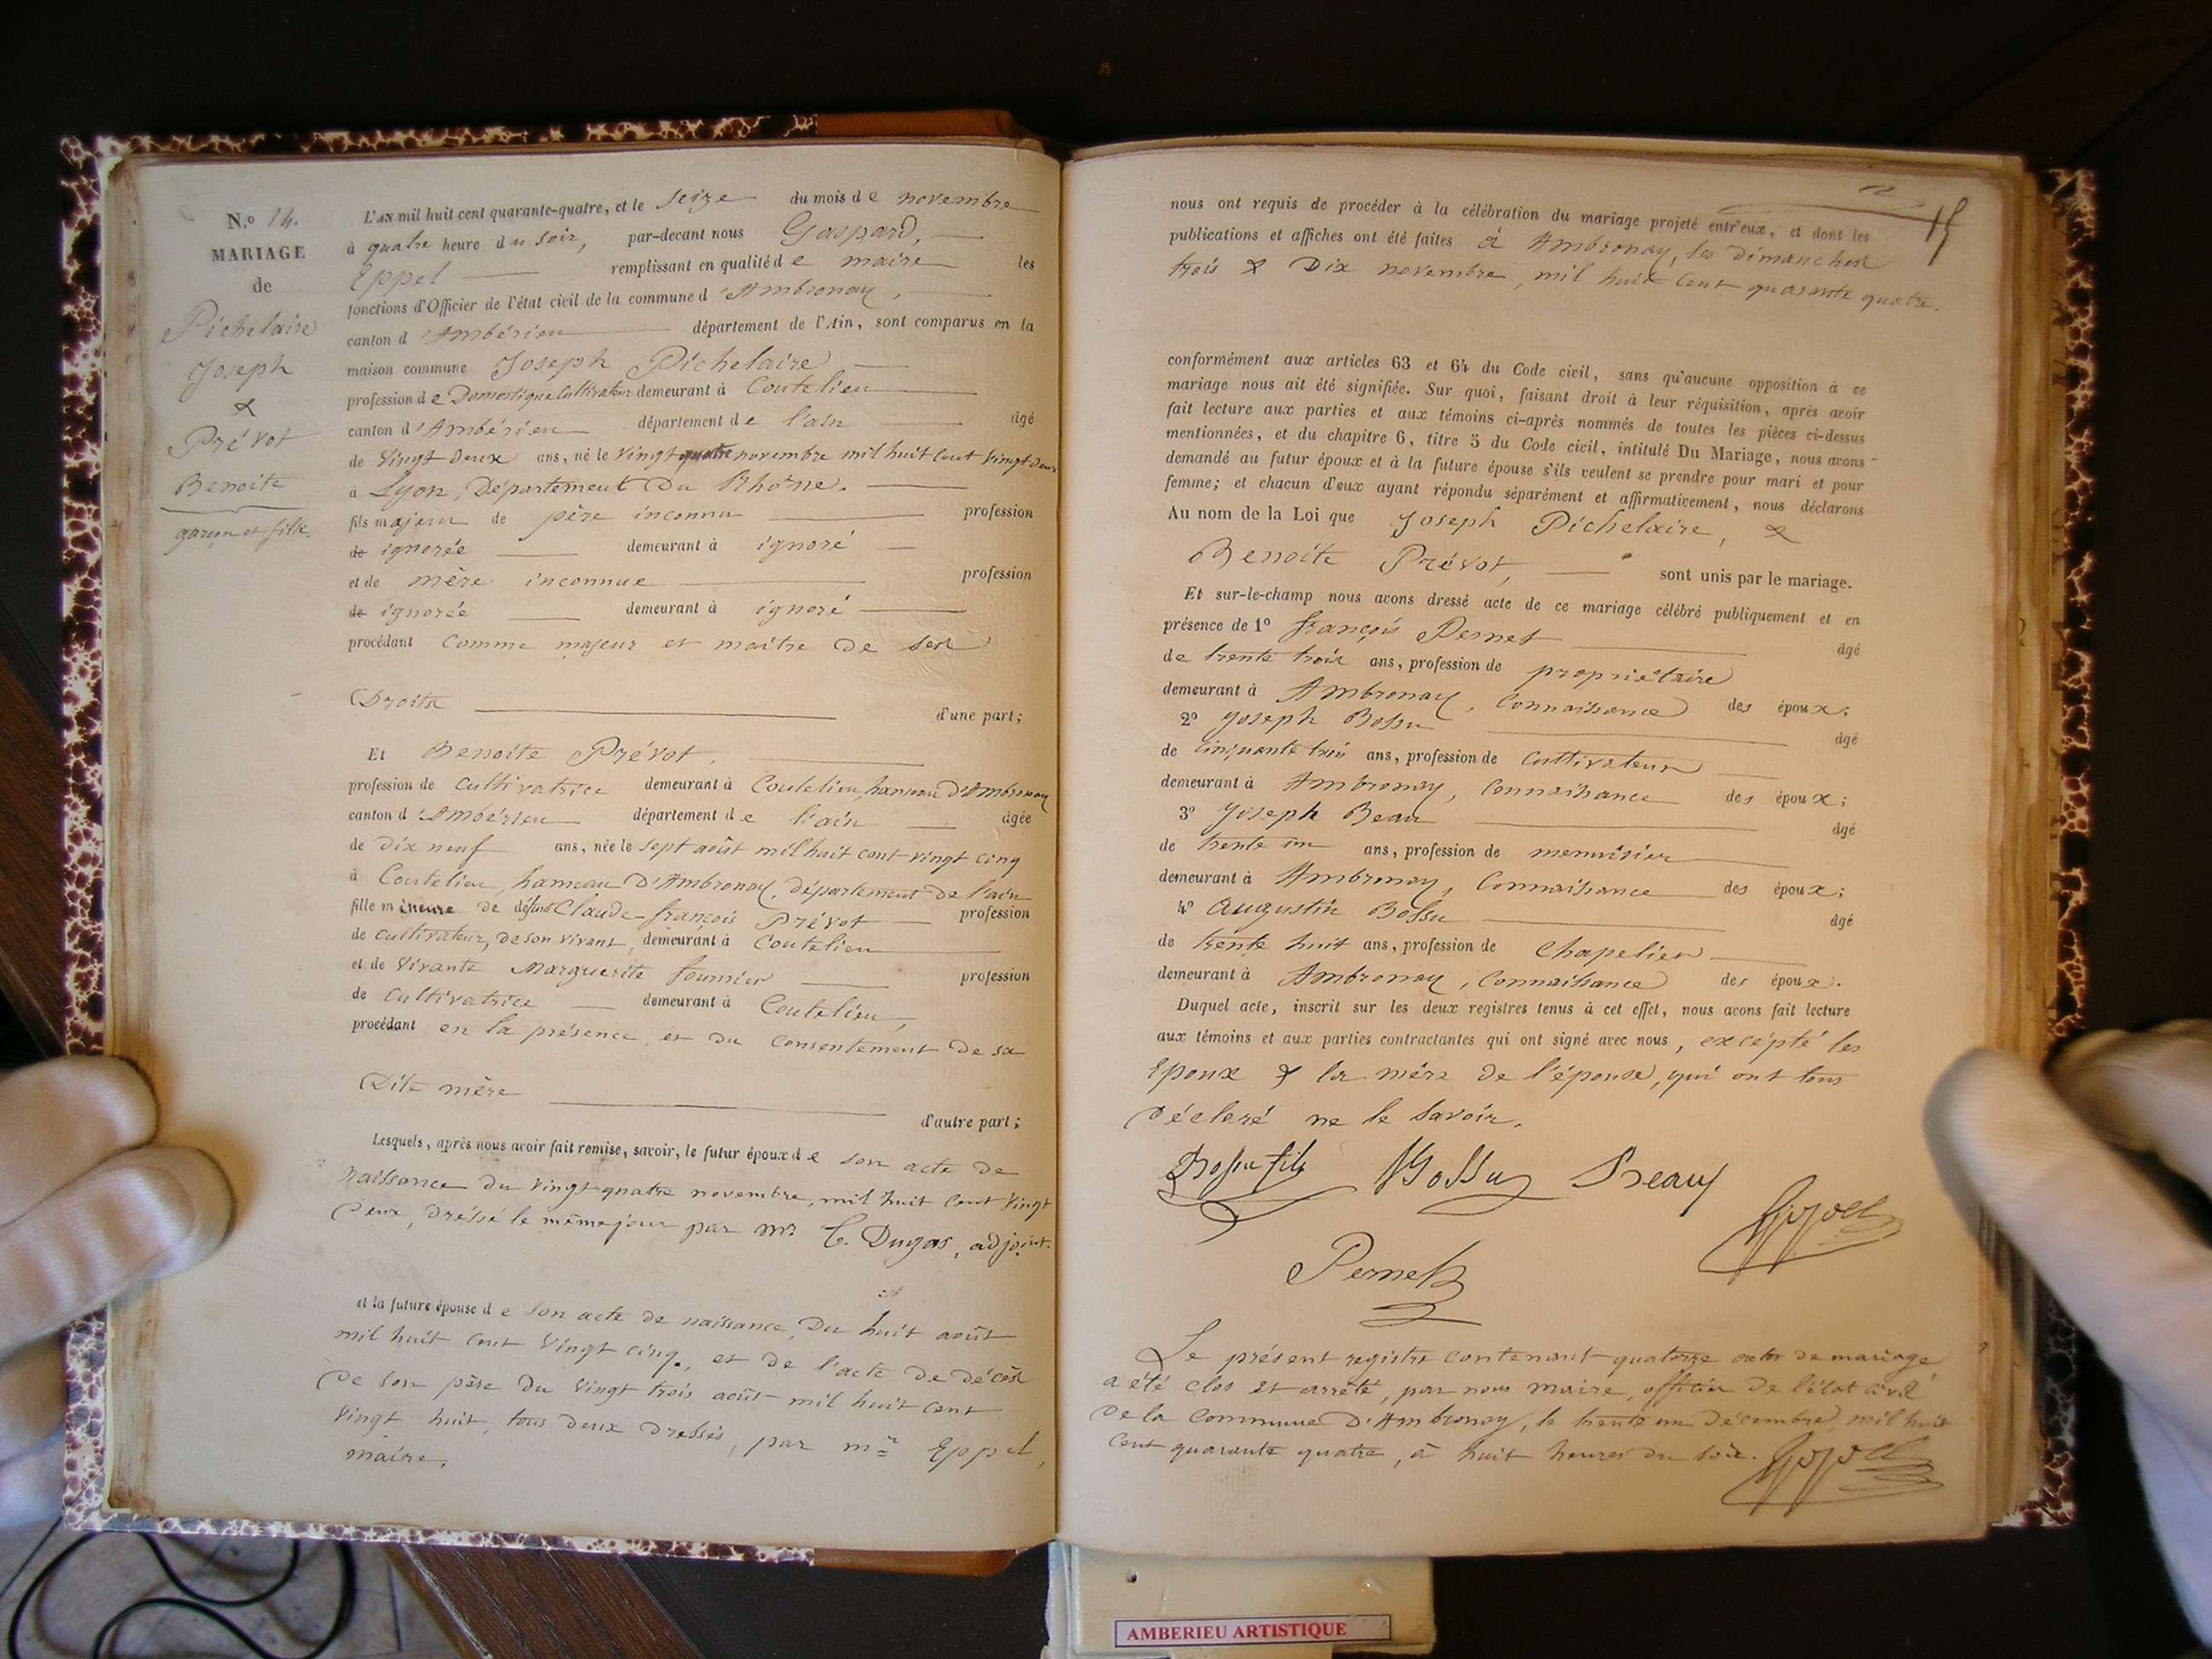 N.o 14.
MARIAGE
de
Pichelaire
Joseph
&
Prévot
Benoite
garçon et fille.
L'AN mil huit cent quarante-quatre, et le seize du mois de novembre
à quatre heure du soir, par-devant nous Gaspard,
Eppel remplissant en qualité de maire les
fonctions d'Officier de l'état civil de la commune d'Ambronay,
canton d'Ambérieu département de l'Ain, sont comparus en la
maison commune Joseph Pichelaire
profession de Domestique Cultivateur demeurant à Coutelieu
canton d'Ambérieu département de l'ain âgé
de vingt deux ans, né le vingt quatre novembre mil huit cent vingt deux
à Lyon, Département du Rhône.
fils majeur de père inconnu profession
de ignorée demeurant à ignoré
et de mère inconnue profession
de ignorée demeurant à ignoré
procédant comme majeur et maître de ses
Droits d'une part;
Et Benoite Prévot,
profession de cultivatrice demeurant à Coutelieu, hameau d'Ambronay
canton d'Ambérieu département de l'ain âgée
de dix neuf ans, née le sept août mil huit cent vingt cinq
à Coutelieu, hameau D'Ambronay, département de l'ain
fille mineure de défunt Claude-françois Prévot profession
de cultivateur, de son vivant, demeurant à Coutelieu
et de vivante Marguerite fournier profession
de cultivatrice demeurant à Coutelieu,
procédant en la présence, et du consentement de sa
Dite mère d'autre part;
Lesquels, après nous avoir fait remise, savoir, le futur époux de son acte de
naissance du vingt-quatre novembre, mil huit cent vingt
Deux, dréssé le même jour par mr C. Dugas, adjoint.
et la future épouse de son acte de naissance, Du huit août
mil huit cent vingt cinq, et de l'acte de décès
De son père du vingt trois août mil huit cent
vingt huit, tous deux dressés, par mr Eppel,
maire.
15
nous ont requis de procéder à la célébration du mariage projeté entr'eux, et dont les
publications et affiches ont été faites à Ambronay, les dimanches
trois & Dix novembre, mil huit cent quarante quatre.
conformément aux articles 63 et 64 du Code civil, sans qu'aucune opposition à ce
mariage nous ait été signifiée. Sur quoi, faisant droit à leur réquisition, après avoir
fait lecture aux parties et aux témoins ci-après nommés de toutes les pièces ci-dessus
mentionnées, et du chapitre 6, titre 5 du Code civil, intitulé Du Mariage, nous avons
demandé au futur époux et à la future épouse s'ils veulent se prendre pour mari et pour
femme; et chacun d'eux ayant répondu séparément et affirmativement, nous déclarons
Au nom de la Loi que Joseph Pichelaire, &
Benoite Prévot, sont unis par le mariage.
Et sur-le-champ nous avons dressé acte de ce mariage célébré publiquement et en
présence de 1o françois Pernet âgé
de trente trois ans, profession de propriétaire
demeurant à Ambronay, Connaissance des époux;
2o Joseph Bossu âgé
de cinquante trois ans, profession de cultivateur
demeurant à Ambronay, Connaissance des époux;
3o Joseph Beau âgé
de trente un ans, profession de menuisier
demeurant à Ambronay, Connaissance des époux;
4o Augustin Bossu âgé
de trente huit ans, profession de Chapelier
demeurant à Ambronay, Connaissance des époux.
Duquel acte, inscrit sur les deux registres tenus à cet effet, nous avons fait lecture
aux témoins et aux parties contractantes qui ont signé avec nous, excépté les
Epoux & la mère de l'épouse, qui ont tous
Décleré ne le savoir.
Bossu fils Bossu Beau
Eppel
Pernet
Le présent registre contenant quatorze actes de mariage
a été clos et arrêté, par nous maire, officier de l'état civil
De la Commune D'Ambronay, le trente un Décembre, mil huit
Cent quarante quatre, à huit heures du soir. Eppel
AMBERIEU ARTISTIQUE